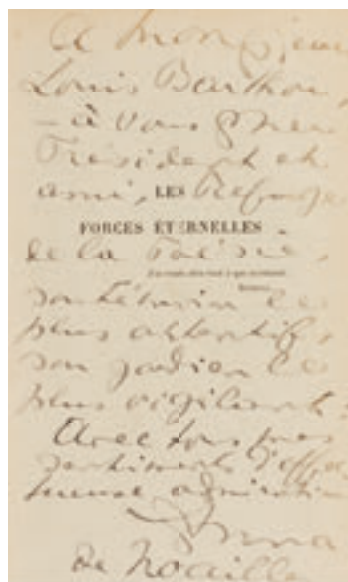 A Monsieur
Louis Barthou,
– à vous cher
Président et
ami, LES Refuge
FORCES ÉTERNELLES
de la Poésie,
son témoin le
plus attentif,
son gardien le
plus vigilant :
Avec tous mes
sentiments d'affec
tueuse admiration
Anna
de Noailles